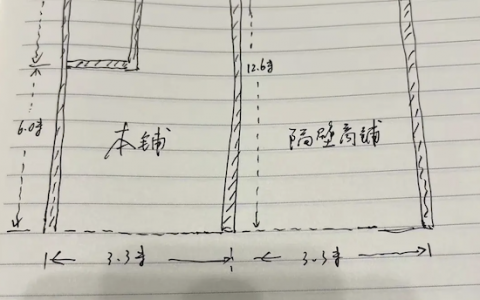 12.6米
6.0米
本铺
隔壁商铺
3.3米
3.3米